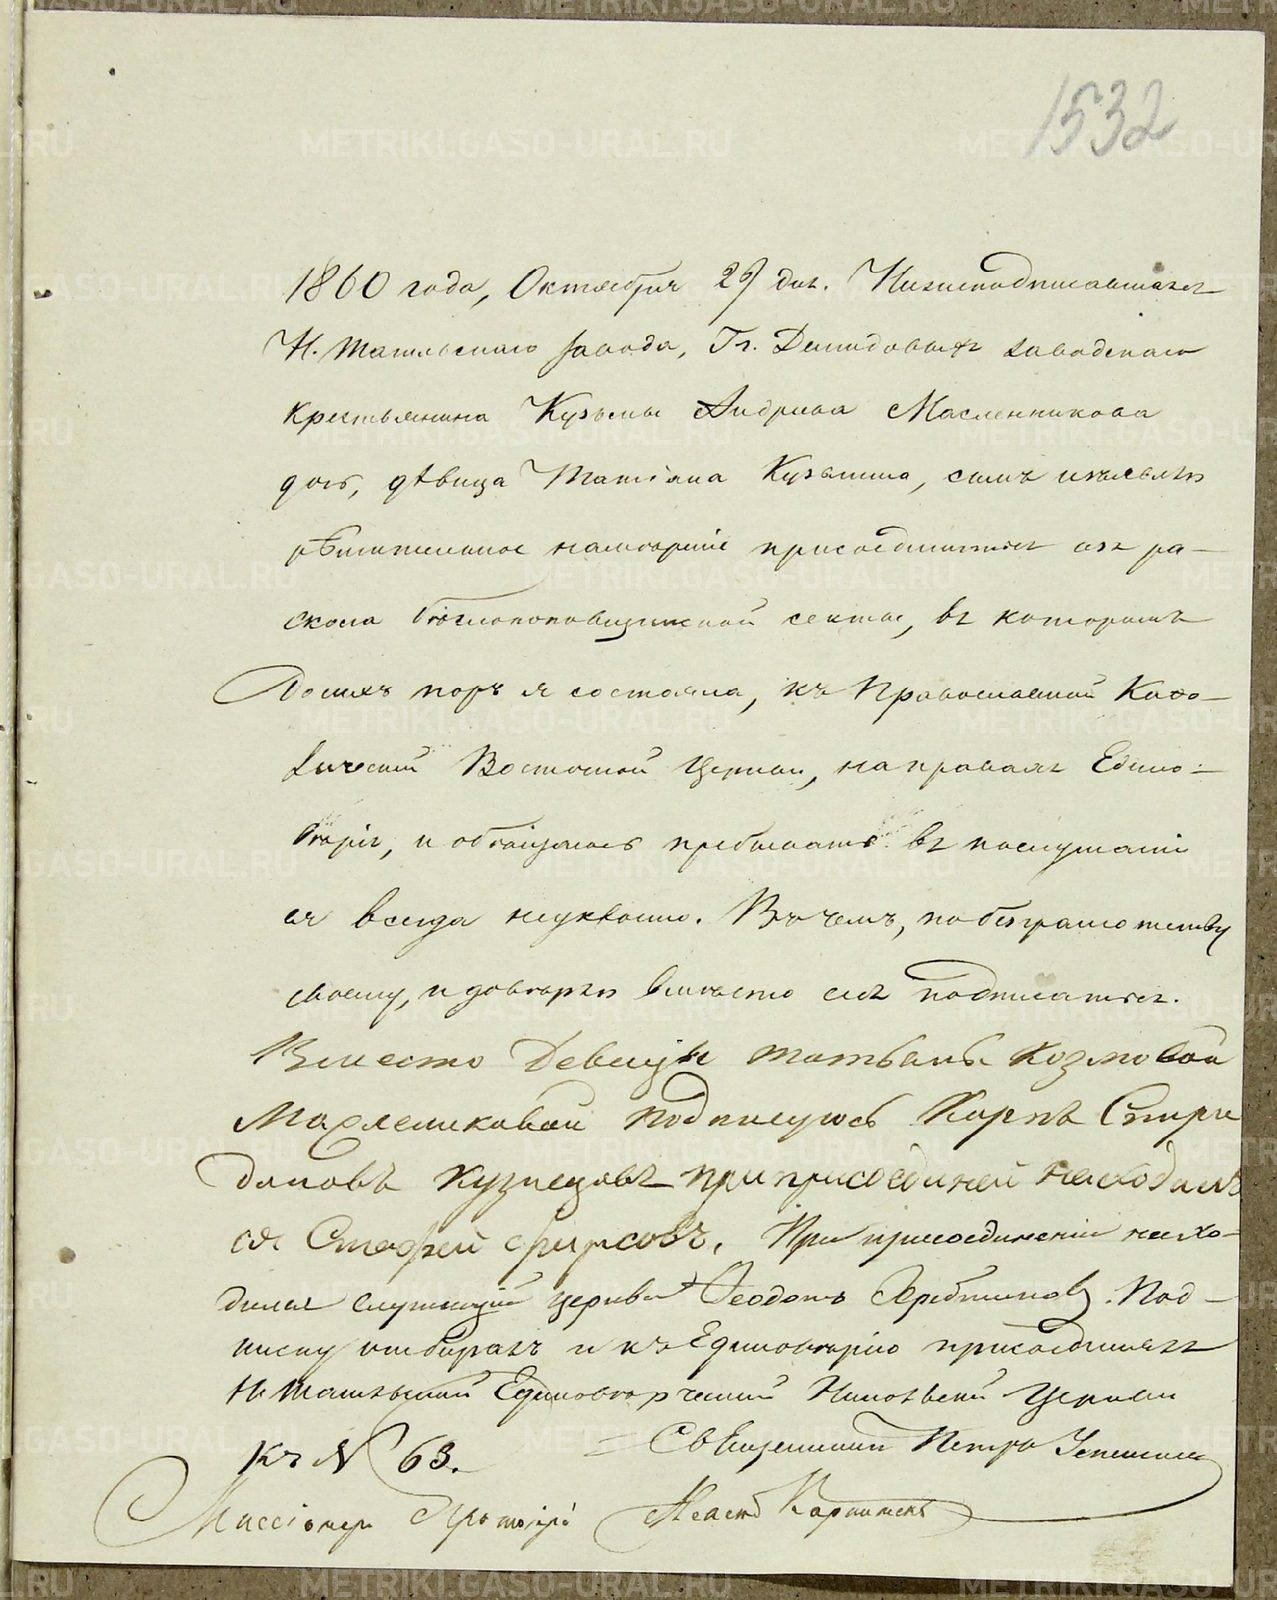 1532
1860 года, Октября 29 дня. Нижеподписавшаяся
Н. Тагильскаго завода, Гг. Демидовыхъ заводскаго
крестьянина Кузьмы Андреева Масленникова
дочь, дѣвица Татіана Кузьмина, симъ изъявляю
рѣшительное намѣреніе присоединиться изъ ра-
скола бѣглопоповщинской секты, въ которомъ
до сихъ поръ я состояла, къ Православной Каѳо-
лической Восточной Церкви, на правилахъ Едино-
вѣрія, и обѣщаюсь пребывать въ послушаніи
ея всегда неуклонно. Въ чемъ, по безграмотству
своему, и довѣряю вмѣсто себя подписаться.
Вместо Девицы Татьяны Козмовой
Маслениковой подписуюсь Карпъ Спири
доновъ Кузнецовъ при присоединеній находилъ
ся Стафей Фирсовъ. При присоединеніи нахо-
дился служащій церкви Ѳеодотъ Серебряковъ. Под-
писку отбиралъ и къ Единовѣрію присоединялъ
Н. Тагильской Единовѣрческой Никольской Церкви
къ № 63. Священникъ Петръ
Миссіонеръ Протоіерей